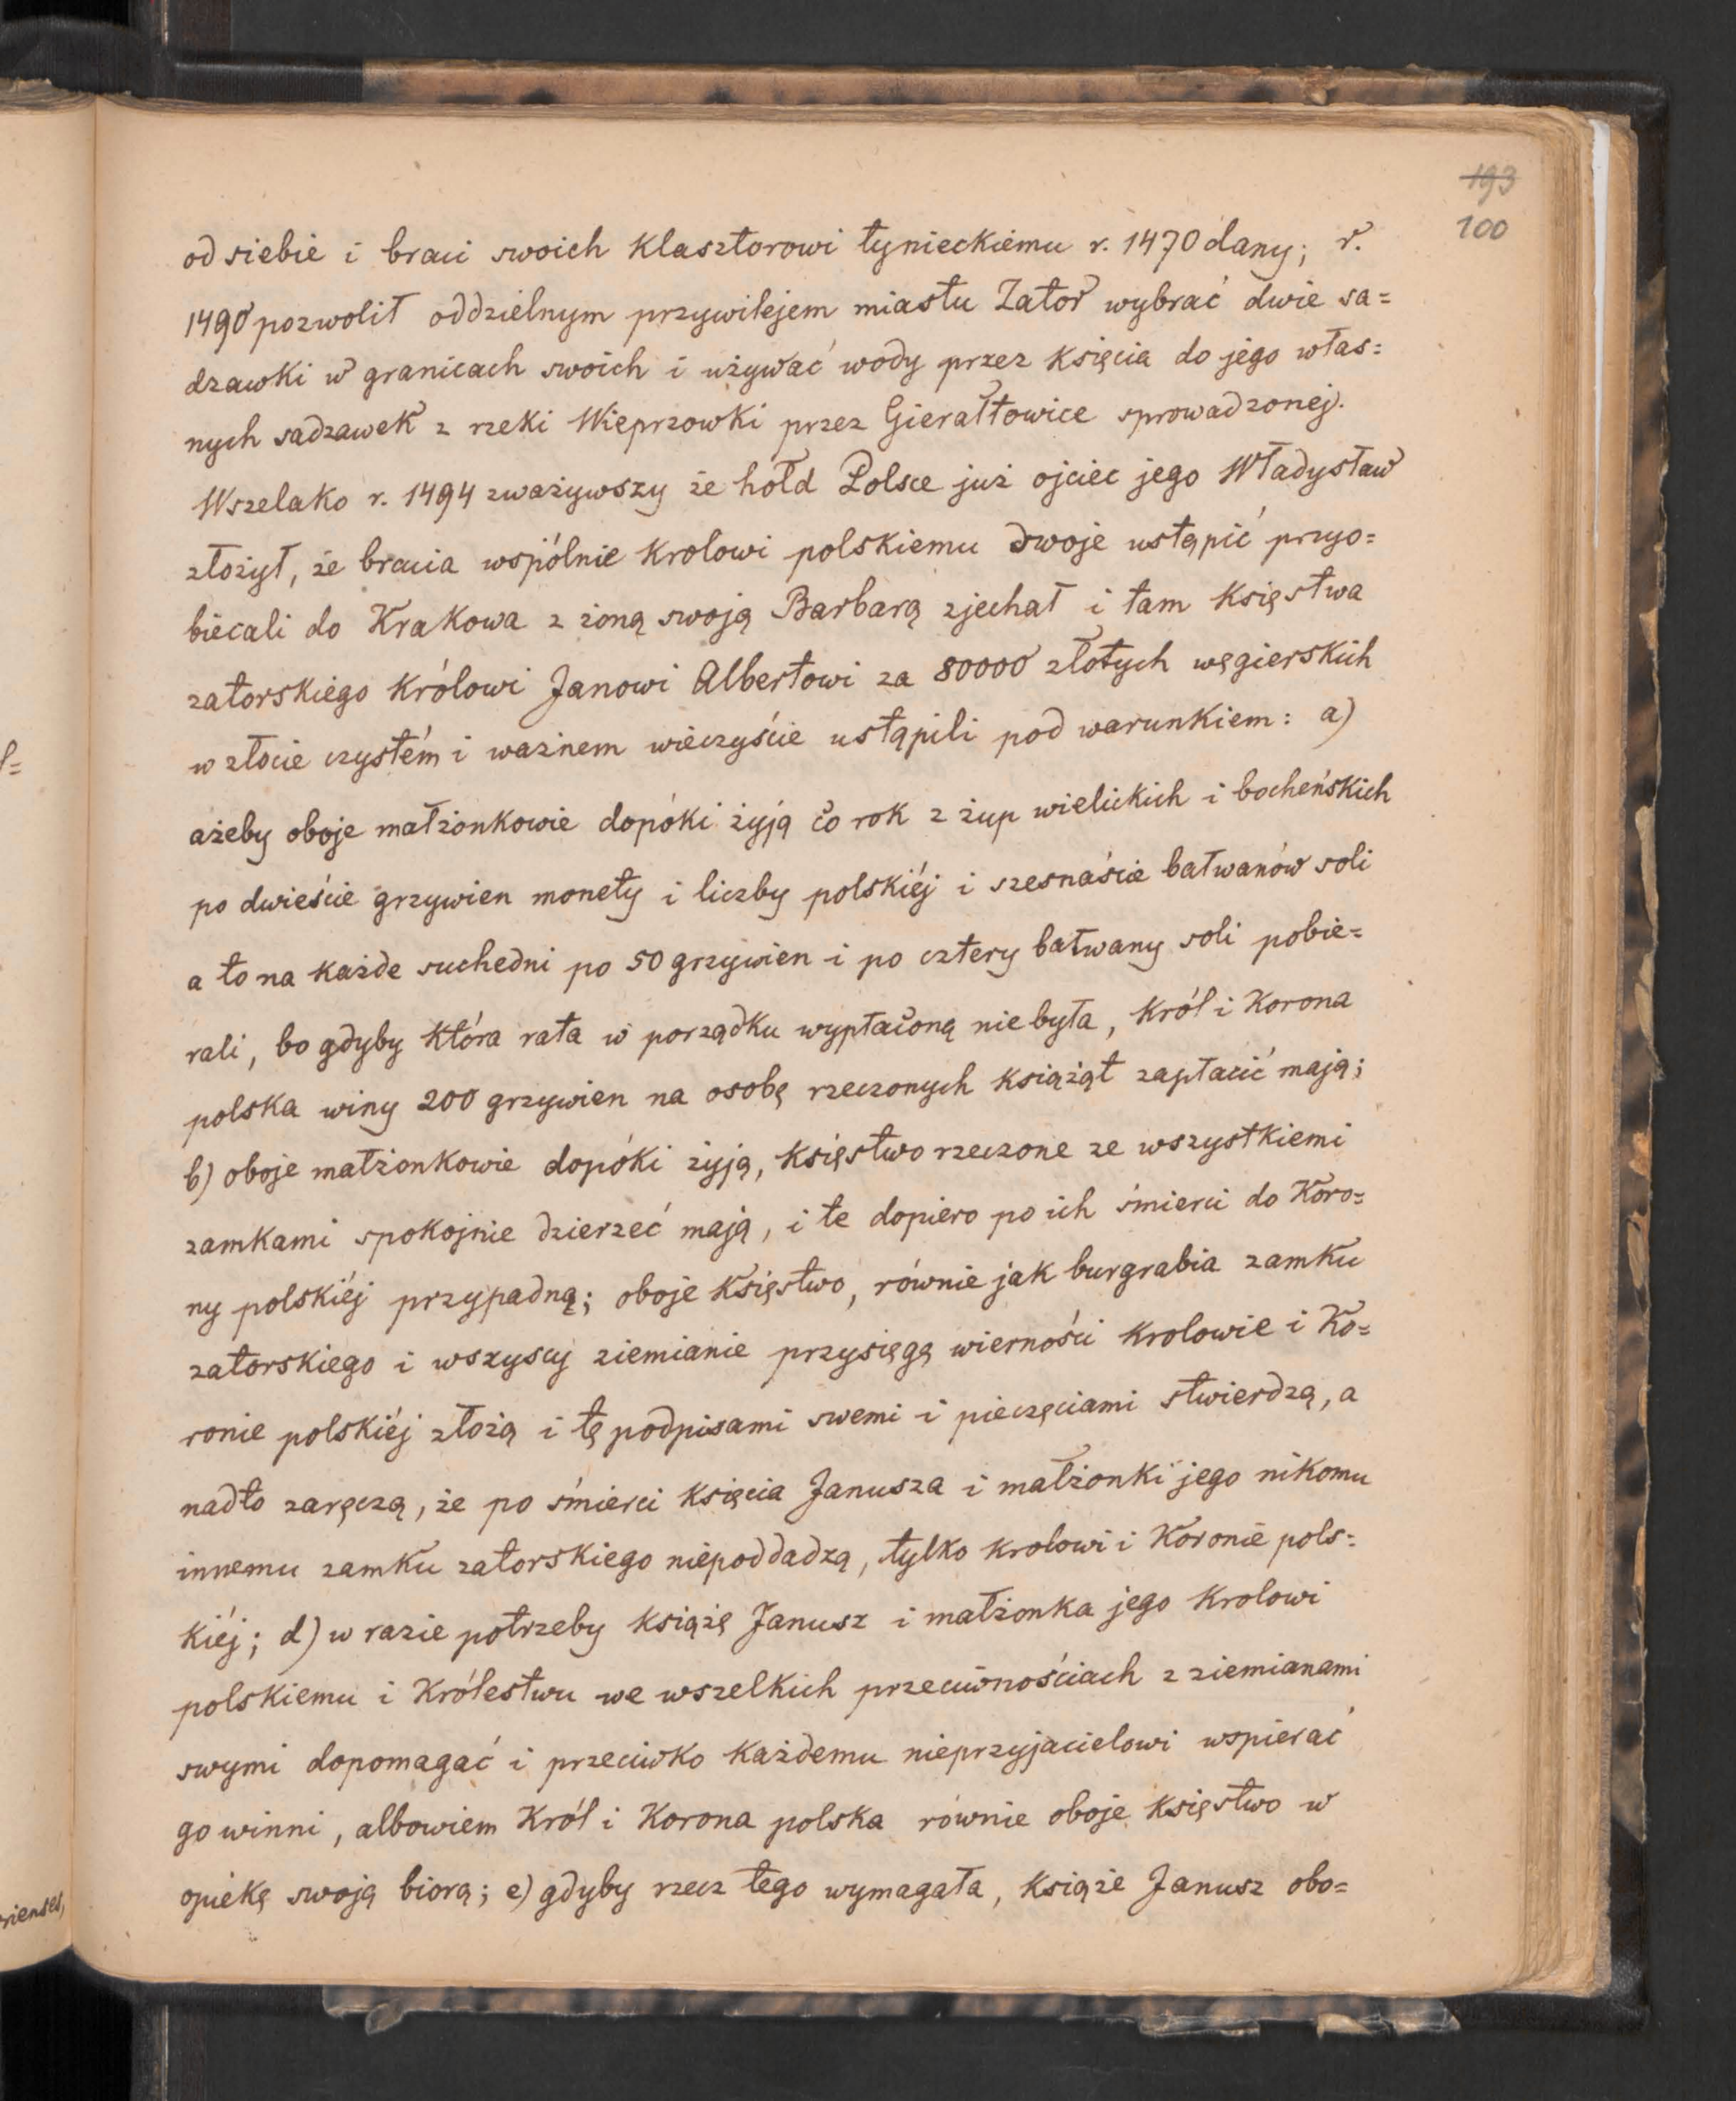 193
100
od siebie i braci swoich klasztorowi tynieckiemu r. 1470 dany; r.
1490 pozwolił oddzielnym przywilejem miastu Zator wybrać dwie sa=
dzawki w granicach swoich i używać wody przez księcia do jego włas=
nych sadzawek z rzeki Wieprzowki przez Gierałtowice sprowadzonej.
Wszelako r. 1494 zważywszy że hołd Polsce już ojciec jego Władysław
złożył, że bracia wspólnie krolowi polskiemu swoje ustąpić przyo=
biecali do Krakowa z żoną swoją Barbarą zjechał i tam księstwa
zatorskiego królowi Janowi Albertowi za 80000 złotych węgierskich
w złocie czystém i ważnem wieczyście ustąpili pod warunkiem: a)
ażeby oboje małżonkowie dopóki żyją co rok z żup wielickich i bocheńskich
po dwieście grzywien monety i liczby polskiéj i szesnaście bałwanów soli
a to na każde suchedni po 50 grzywien i po cztery bałwany soli pobie=
rali, bo gdyby która rata w porządku wypłaconą niebyła, król i Korona
polska winy 200 grzywien na osobę rzeczonych książąt zapłacić mają;
b) oboje małżonkowie dopóki żyją, księstwo rzeczone ze wszystkiemi
zamkami spokojnie dzierzeć mają, i te dopiero po ich śmierci do Koro=
ny polskiéj przypadną; oboje księstwo, równie jak burgrabia zamku
zatorskiego i wszyscy ziemianie przysięgę wierności krolowie i Ko=
ronie polskiéj złożą i tę podpisami swemi i pieczęciami stwierdzą, a
nadto zaręczą, że po śmierci księcia Janusza i małżonki jego nikomu
innemu zamku zatorskiego niepoddadzą, tylko krolowi i Koronie pols=
kiéj; d) w razie potrzeby książę Janusz i małżonka jego krolowi
polskiemu i Królestwu we wszelkich przeciwnościach z ziemianami
swymi dopomagać i przeciwko każdemu nieprzyjacielowi wspierać
go winni, albowiem Król i Korona polska równie oboje księstwo w
opiekę swoją biorą; e) gdyby rzecz tego wymagała, książe Janusz obo=